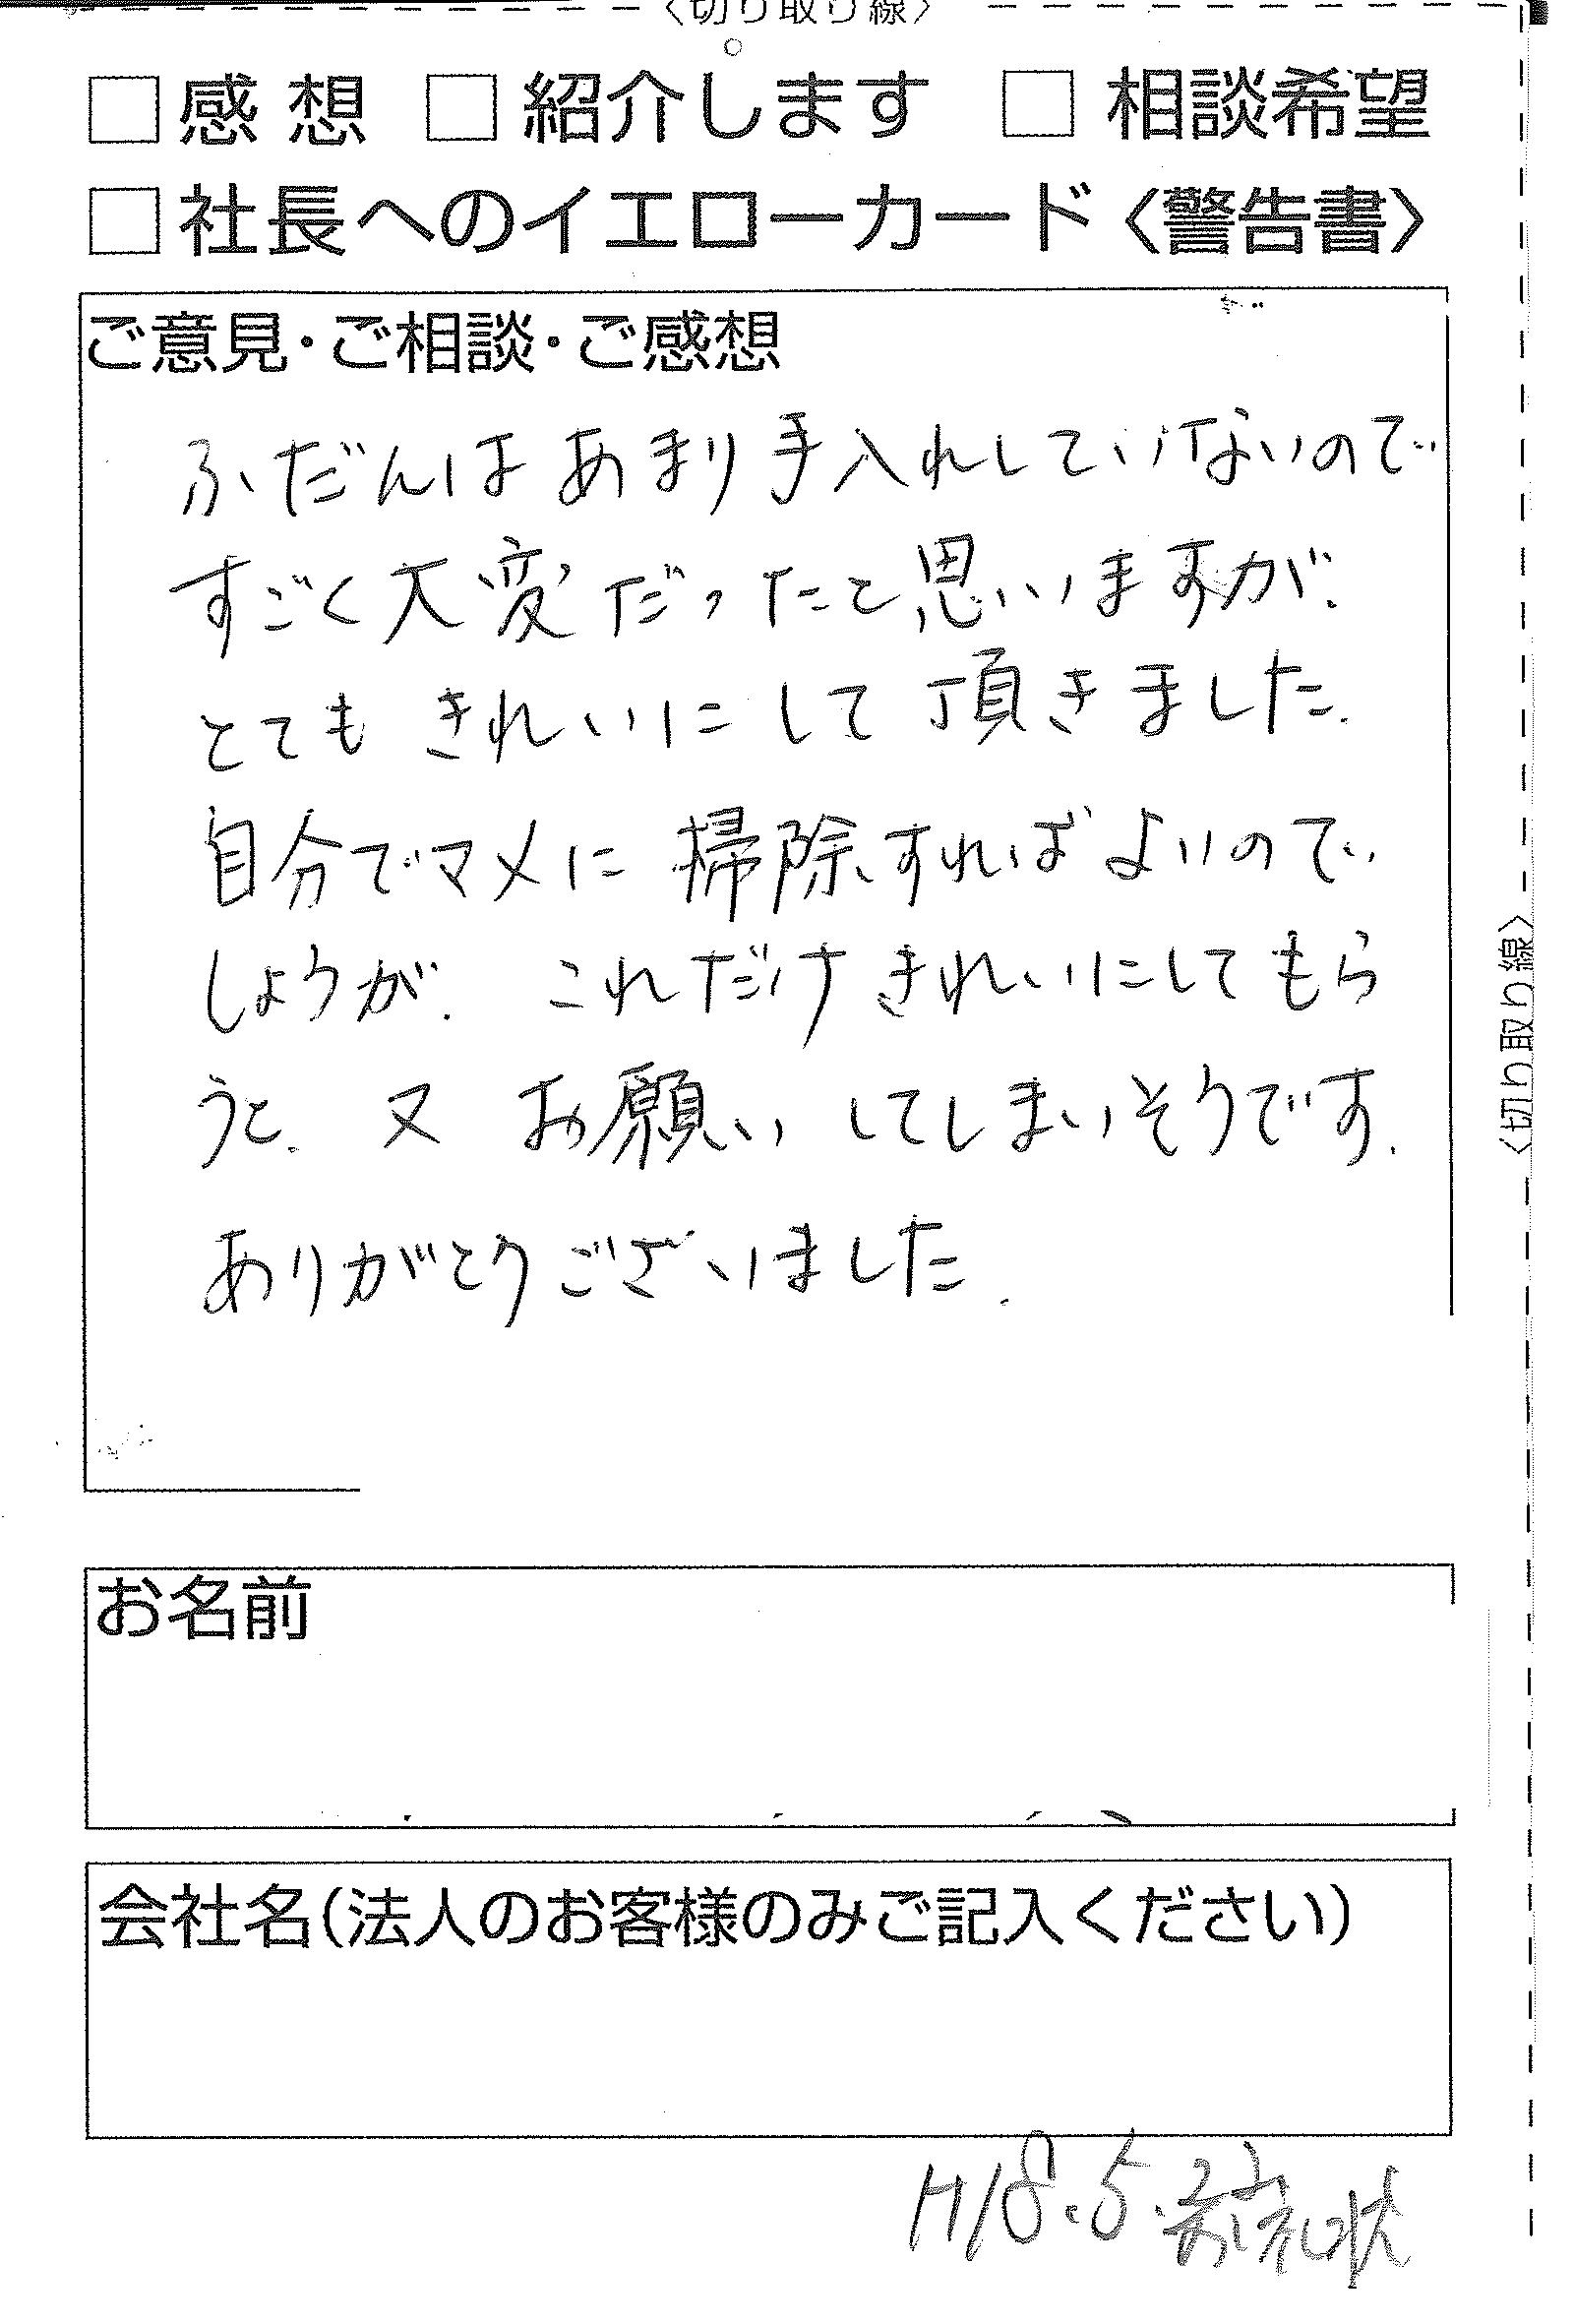 〈切り取り線〉
□感想 □紹介します □相談希望
□社長へのイエローカード〈警告書〉
ご意見・ご相談・ご感想
ふだんはあまり手入れしていないので
すごく大変だったと思いますが、
とてもきれいにして頂きました。
自分でマメに掃除すればよいので
しょうが、これだけきれいにしてもら
うと、又お願いしてしまいそうです。
ありがとうございました。
〈切り取り線〉
お名前
会社名(法人のお客様のみご記入ください)
H18.5.23
お礼状